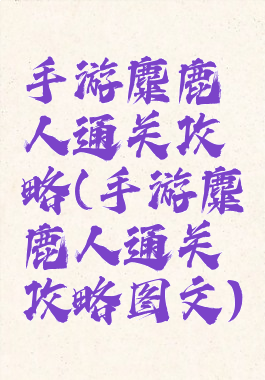 手游麋鹿
人通关攻
略(手游麋
鹿人通关
攻略图文)